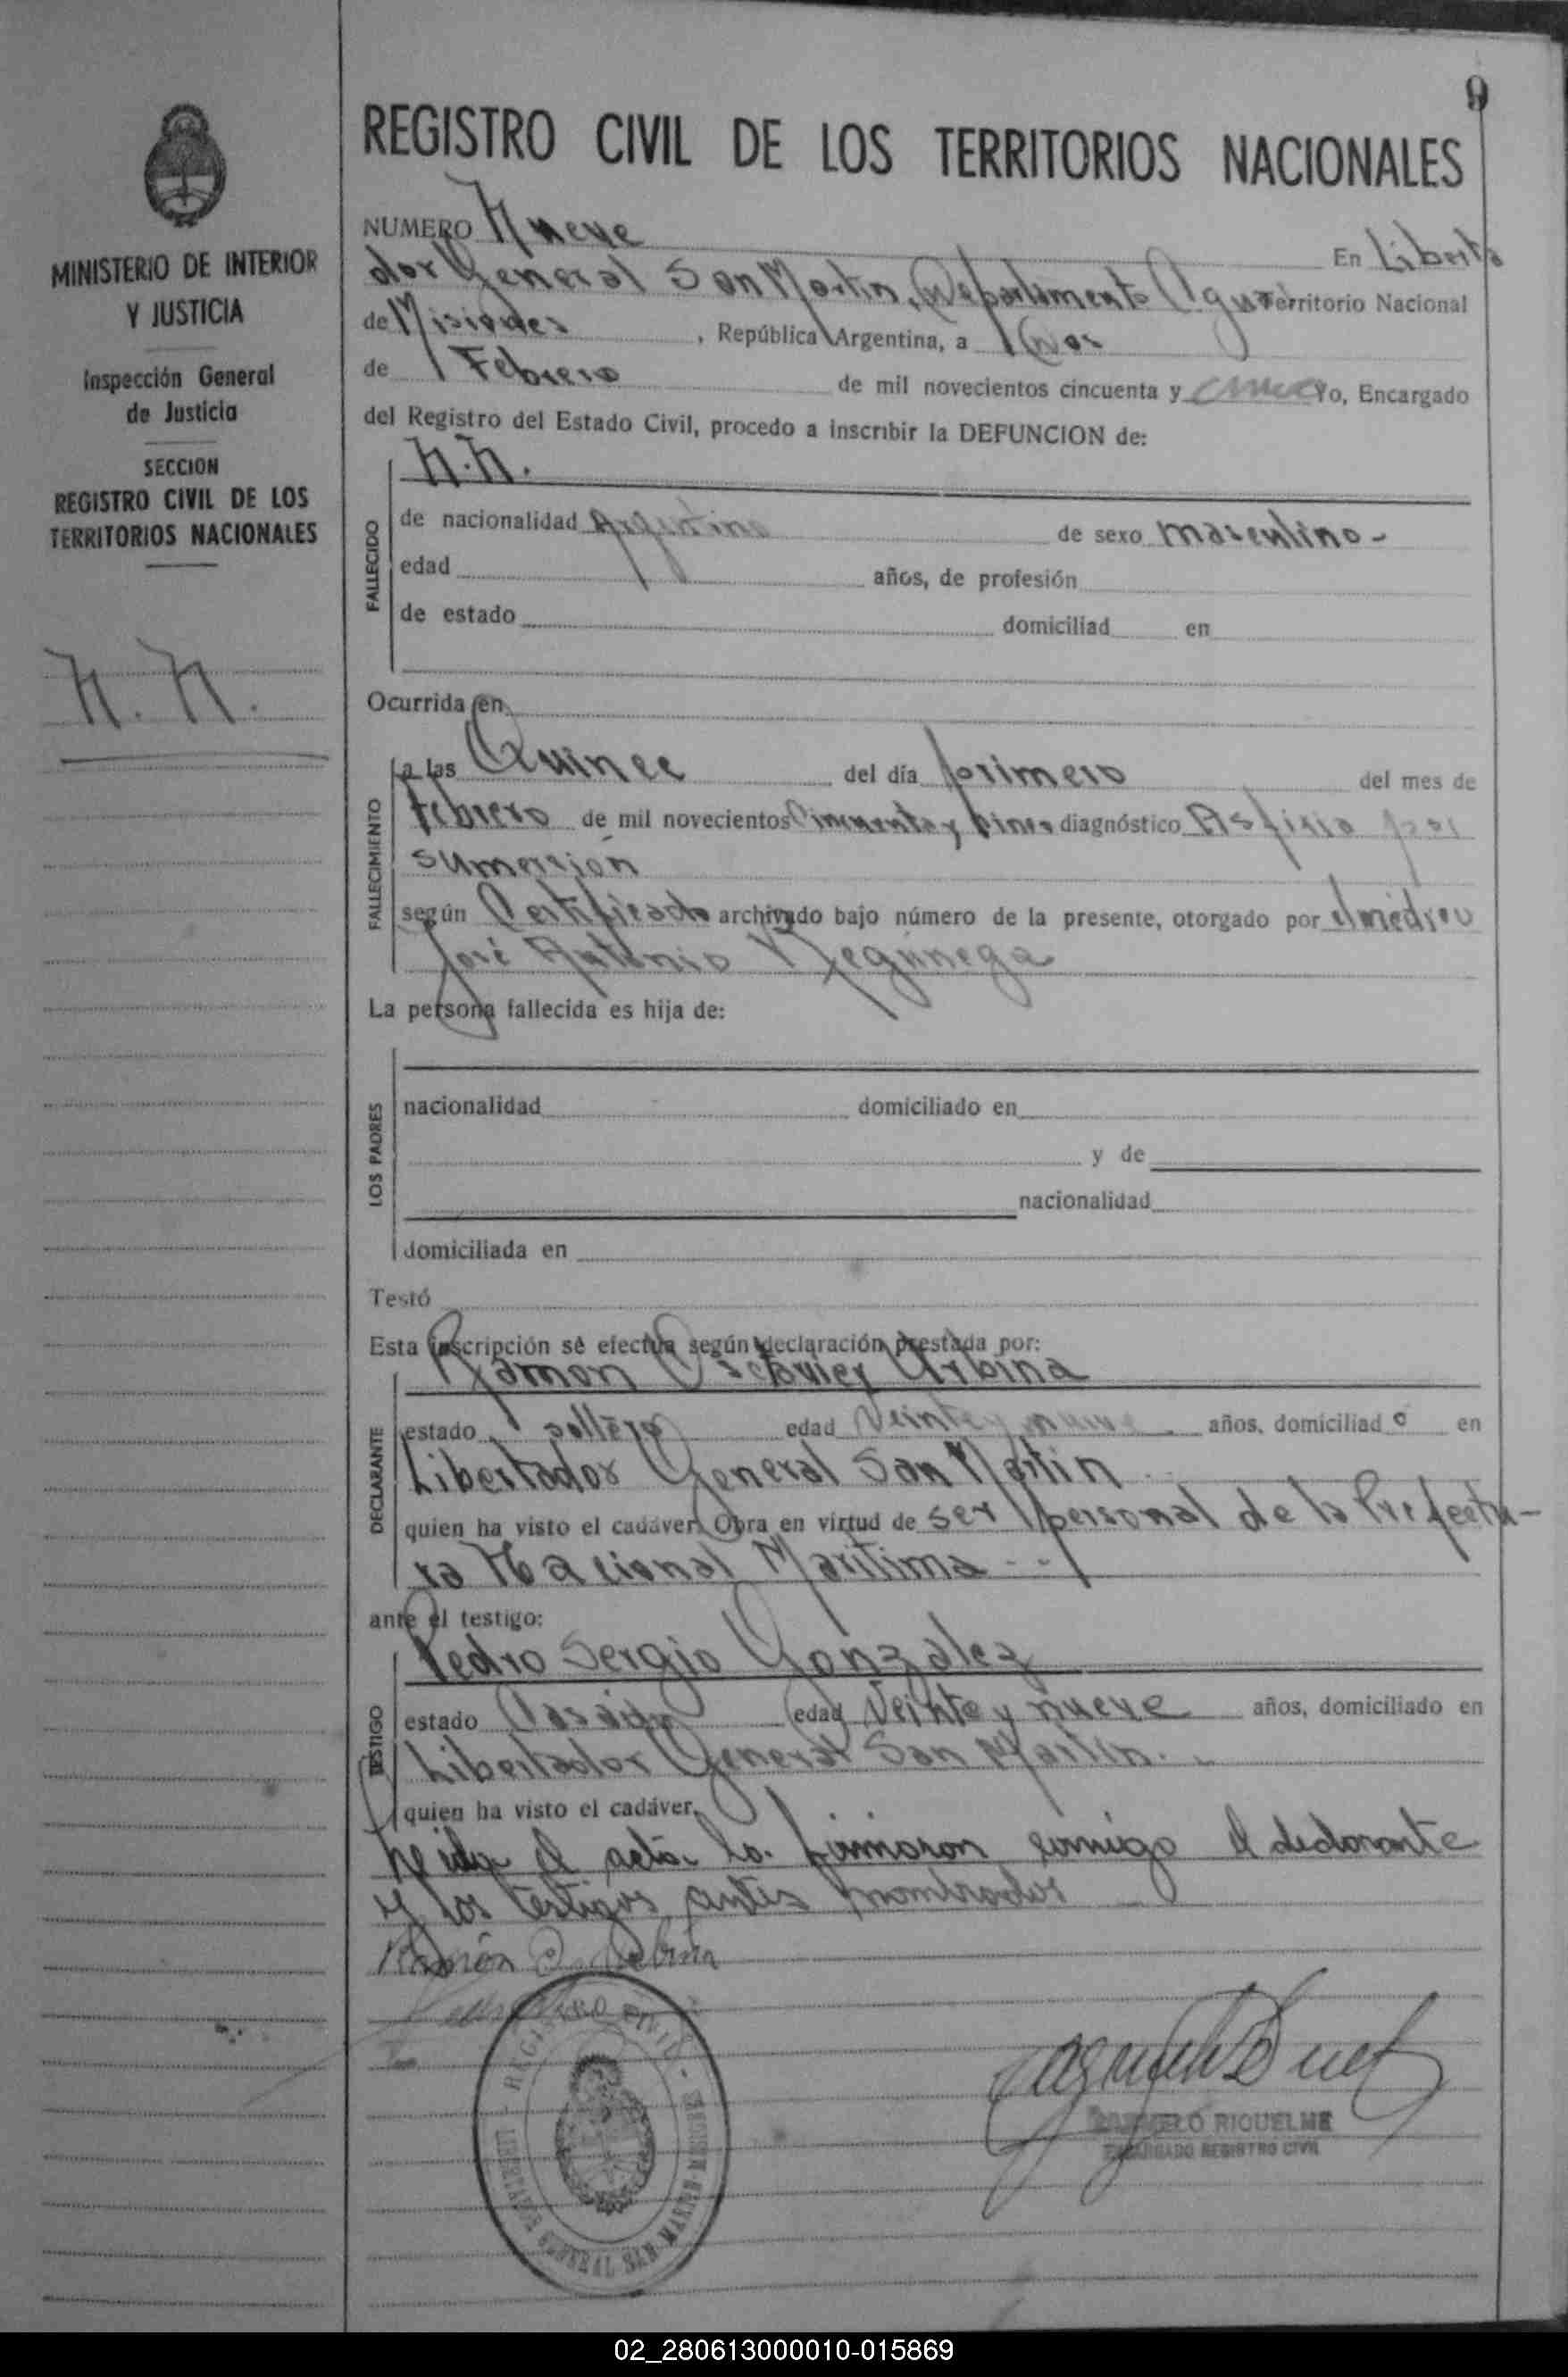 9
REGISTRO CIVIL DE LOS TERRITORIOS NACIONALES
MINISTERIO DE INTERIOR
Y JUSTICIA
Inspección General
de Justicia
SECCION
REGISTRO CIVIL DE LOS
TERRITORIOS NACIONALES
N. N.
NUMERO Nueve En Liberta
dor General San Martin, Departamento Territorio Nacional
de Misiones, República Argentina, a Dos
de Febrero de mil novecientos cincuenta y cinco Yo, Encargado
del Registro del Estado Civil, procedo a inscribir la DEFUNCION de:
N.N.
FALLECIDO
de nacionalidad Argentina de sexo masculino-
edad años, de profesión
de estado domiciliad en
Ocurrida en
FALLECIMIENTO
a las Quince del día primero del mes de
febrero de mil novecientos cincuenta y cinco diagnóstico Asfixia por
sumersión
según Certificado archivado bajo número de la presente, otorgado por el médico
José Antonio
La persona fallecida es hija de:
LOS PADRES
nacionalidad domiciliado en
y de
nacionalidad
domiciliada en
Testó
Esta inscripción se efectúa según declaración prestada por:
Ramon Urbina
DECLARANTE
estado soltero edad Veinte y nueve años, domiciliado en
Libertador General San Martin
quien ha visto el cadáver. Obra en virtud de ser personal de la Prefectu-
ra Nacional Maritima
ante el testigo:
Pedro Sergio Gonzalez
TESTIGO
estado Casado edad Veinte y nueve años, domiciliado en
Libertador General San Martin.
quien ha visto el cadáver.
Leida el acta la firmaron conmigo el declarante
y los testigos antes nombrados
Ramón O. Urbina
REGISTRO CIVIL
LIBERTADOR GENERAL SAN MARTIN
RIQUELME
ENCARGADO REGISTRO CIVIL
02_280613000010-015869